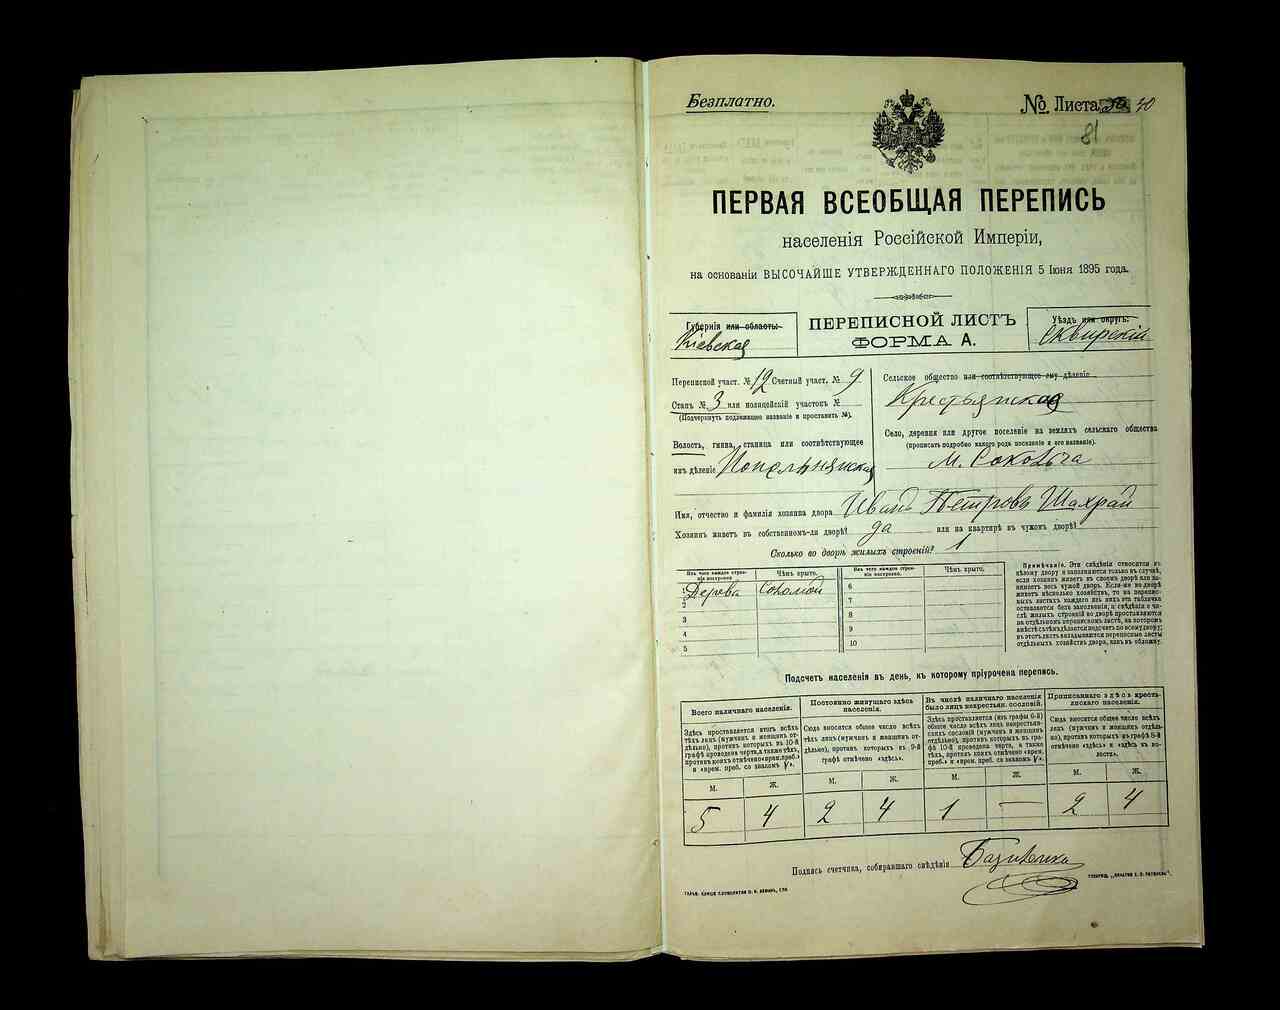 Безплатно.
№ Листа 40
81
ПЕРВАЯ ВСЕОБЩАЯ ПЕРЕПИСЬ
населенія Россійской Имперіи,
на основаніи ВЫСОЧАЙШЕ УТВЕРЖДЕННАГО ПОЛОЖЕНІЯ 5 Іюня 1895 года.
Губернія или область:
Кіевская
ПЕРЕПИСНОЙ ЛИСТЪ
ФОРМА А.
Уѣздъ или округъ:
Сквирскій
Переписной участ. № 12 Счетный участ. № 9
Станъ № 3 или полицейскій участокъ №
(Подчеркнуть подлежащее названіе и проставить №).
Волость, гмина, станица или соотвѣтствующее
имъ дѣленіе Попельнянская
Сельское общество или соотвѣтствующее ему дѣленіе
Крестьянское
Село, деревня или другое поселеніе на земляхъ сельскаго общества
(прописать подробно какого рода поселеніе и его названіе).
М. Соколча
Имя, отчество и фамилія хозяина двора Иванъ Петровъ Шахрай
Хозяинъ живетъ въ собственномъ-ли дворѣ? да или на квартирѣ въ чужомъ дворѣ?
Сколько во дворѣ жилыхъ строеній? 1
Изъ чего каждое строеніе построено.
Чѣмъ крыто.
Изъ чего каждое строеніе построено.
Чѣмъ крыто.
1 Дерева Соломой 6
2 7
3 8
4 9
5 10
Примѣчаніе. Эти свѣдѣнія относятся къ
цѣлому двору и заполняются только въ случаѣ,
если хозяинъ живетъ въ своемъ дворѣ или за-
нимаетъ весь чужой дворъ. Если-же во дворѣ
живетъ нѣсколько хозяйствъ, то на перепис-
ныхъ листахъ каждаго изъ нихъ эта табличка
оставляется безъ заполненія, а свѣдѣнія о чи-
слѣ жилыхъ строеній во дворѣ проставляются
на отдѣльномъ переписномъ листѣ, на которомъ
вмѣстѣ съ тѣмъ дѣлается подсчетъ по всему двору;
въ этотъ листъ вкладываются переписные листы
отдѣльныхъ хозяйствъ двора, какъ въ обложку.
Подсчетъ населенія въ день, къ которому пріурочена перепись.
Всего наличнаго населенія.
Здѣсь проставляется итогъ всѣхъ
тѣхъ лицъ (мужчинъ и женщинъ от-
дѣльно), противъ которыхъ въ 10-й
графѣ проведена черта, а также тѣхъ,
противъ коихъ отмѣчено «врем. преб.»
и «врем. преб. со знакомъ V».
Постоянно живущаго здѣсь
населенія.
Сюда вносится общее число всѣхъ
тѣхъ лицъ (мужчинъ и женщинъ от-
дѣльно), противъ которыхъ въ 9-й
графѣ отмѣчено «здѣсь».
Въ числѣ наличнаго населенія
было лицъ некрестьян. сословій.
Здѣсь проставляется (изъ графы 6-й)
общее число всѣхъ некрестьян-
скихъ сословій (мужчинъ и женщинъ
отдѣльно), противъ которыхъ въ гра-
фѣ 10-й проведена черта, а также
тѣхъ, противъ коихъ отмѣчено «врем.
преб.» и «врем. преб. со знакомъ V».
Приписаннаго здѣсь кресть-
янскаго населенія.
Сюда вносится общее число всѣхъ
лицъ (мужчинъ и женщинъ отдѣль-
но), противъ которыхъ въ графѣ 8-й
отмѣчено «здѣсь» и «здѣсь въ во-
лости».
М. Ж. М. Ж. М. Ж. М. Ж.
5 4 2 4 1 — 2 4
Подпись счетчика, собиравшаго свѣдѣнія